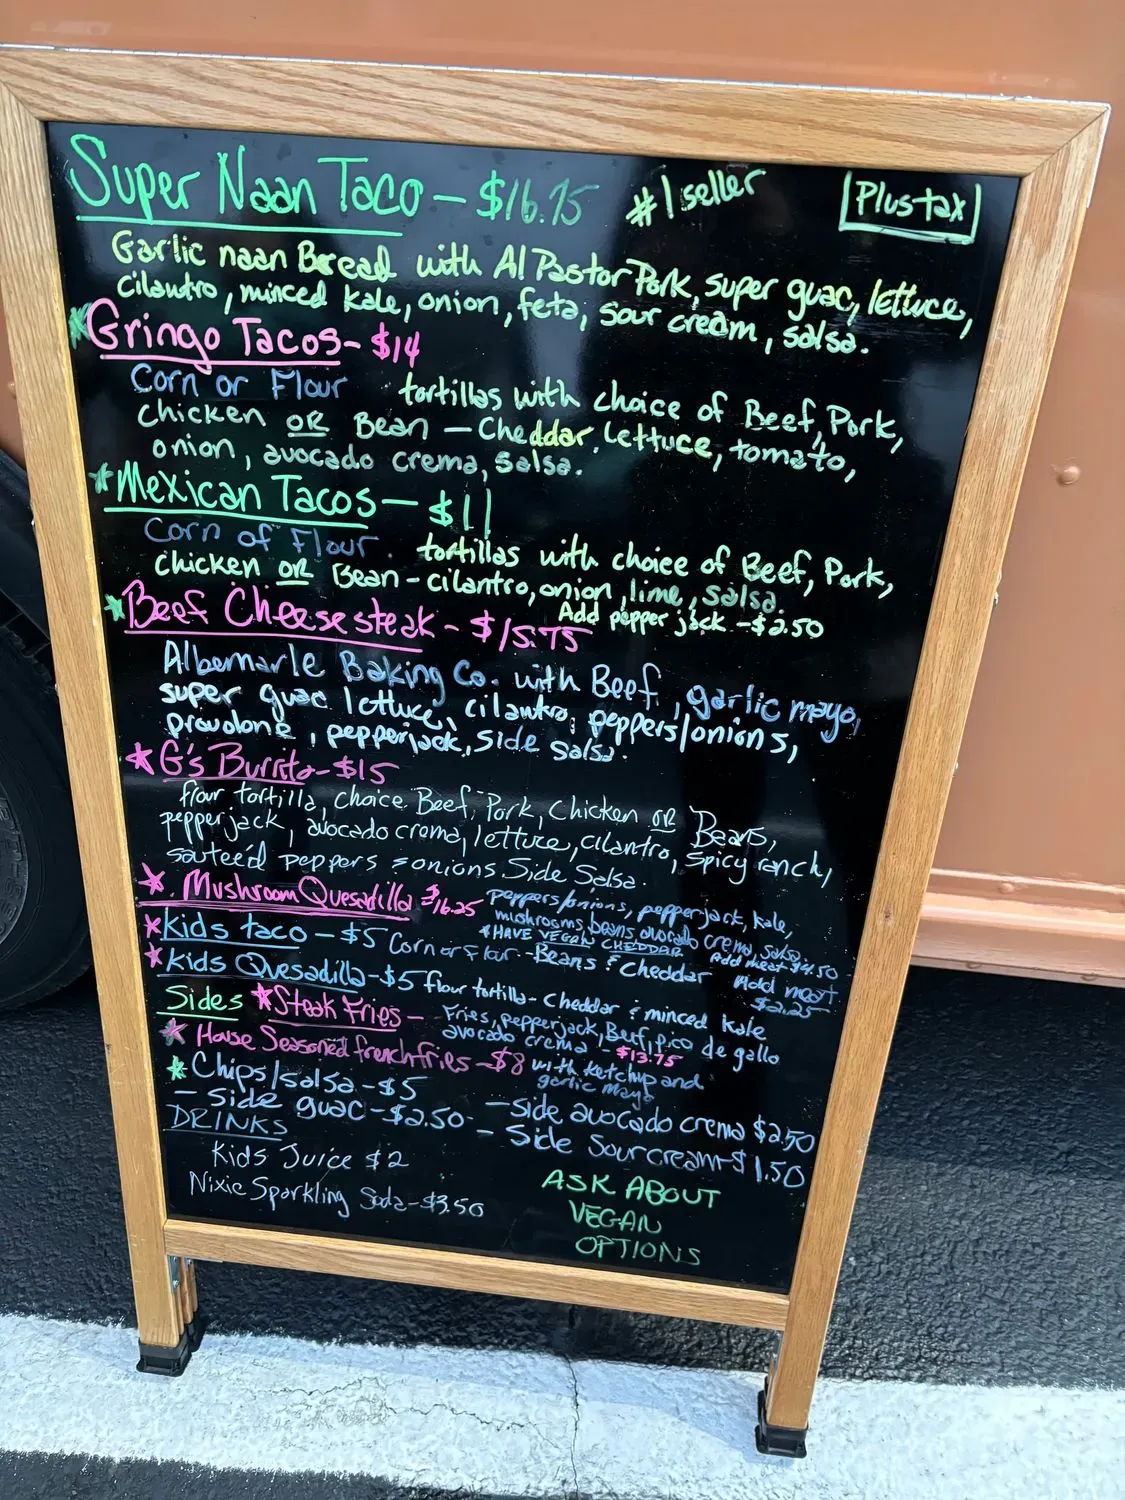 Super Naan Taco - $16.75 #1 seller Plus tax
Garlic naan Bread with Al Pastor Pork, super guac, lettuce,
cilantro, minced kale, onion, feta, sour cream, salsa.
* Gringo Tacos - $14
Corn or Flour tortillas with choice of Beef, Pork,
chicken OR Bean - Cheddar, lettuce, tomato,
onion, avocado crema, salsa.
* Mexican Tacos - $11
Corn of Flour tortillas with choice of Beef, Pork,
chicken OR Bean - cilantro, onion, lime, salsa.
Add pepper jack - $2.50
* Beef Cheesesteak - $15.75
Albemarle Baking Co. with Beef, garlic mayo,
super guac lettuce, cilantro, peppers/onions,
provolone, pepperjack, side salsa.
* G's Burrito - $15
flour tortilla, choice Beef, Pork, Chicken OR Beans,
pepperjack, avocado crema, lettuce, cilantro, spicy ranch,
sauteé'd peppers & onions Side Salsa.
* Mushroom Quesadilla $16.25 peppers/onions, pepperjack, kale,
mushrooms, beans, avocado crema, salsa.
* HAVE VEGAN CHEDDAR Add meat $4.50
* Kids taco - $5 Corn or flour - Beans & cheddar
meat
$2.25
* Kids Quesadilla - $5 flour tortilla - cheddar & minced kale
Sides * Steak Fries - Fries, pepperjack, Beef, pico de gallo
avocado crema - $13.75
* House Seasoned french fries - $8 with ketchup and
garlic mayo
* Chips/salsa - $5
- side guac - $2.50 - side avocado crema $2.50
- Side sour cream - $1.50
DRINKS
Kids Juice $2
Nixie Sparkling Soda - $3.50
ASK ABOUT
VEGAN
OPTIONS